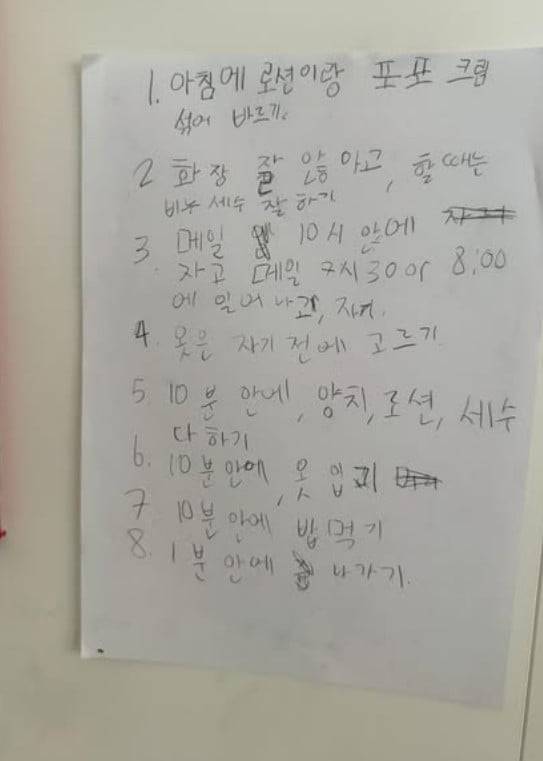 1. 아침에 로션이랑 포포 크림
섞어 바르기.
2 화장 잘 않아고, 할때는
비누 세수 잘 하기
3. 매일 10시 안에
자고 매일 7시30 or 8:00
에 일어나고, 자기.
4. 옷은 자기 전에 고르기
5. 10분 안에, 양치, 로션, 세수
다 하기
6. 10분안에, 옷 입기
7 10분 안에 밥먹기
8. 1분 안에 나가기.